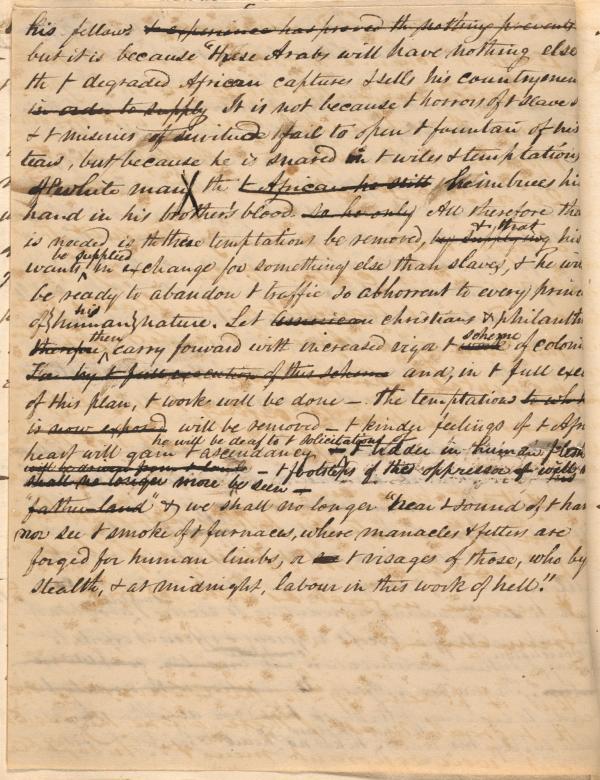 his fellows & experience has proved th nothing prevents
but it is because "these Arabs will have nothing else
th t degraded African captures & sells his countrymen
in order to supply It is not because t horrors of t slave s
& t miseries of servitude fail to open t fountain of his
tears, but because he is snared in t wiles & temptations
of white man, th t African he still heimbrues his
hand in his brother's blood. so he only All therefore tha
is needed is th these temptations be removed, by supplying his
& that
wants be supplied in exchange for something else than slaves, & he will
be ready to abandon t traffic so abhorrent to every princ
of his human nature. Let American christians & philanthr
therefore then carry forward with increased vigor t scheme of coloni
For by t full execution of this scheme and, in t full exec
of this plan, t work will be done — the temptations to wh
is now exposed will be removed — t kinder feelings of t Afri
heart will gain t ascendancy he will be deaf to t solicitations of t trader in human flesh
shall no longer more be seen — t footsteps of the oppressor
"father-land" & we shall no longer "hear t sound of t ham
nor see t smoke of t furnaces, where manacles & fetters are
forged for human limbs, or t visages of those, who by
stealth, & at midnight, labour in this work of hell."